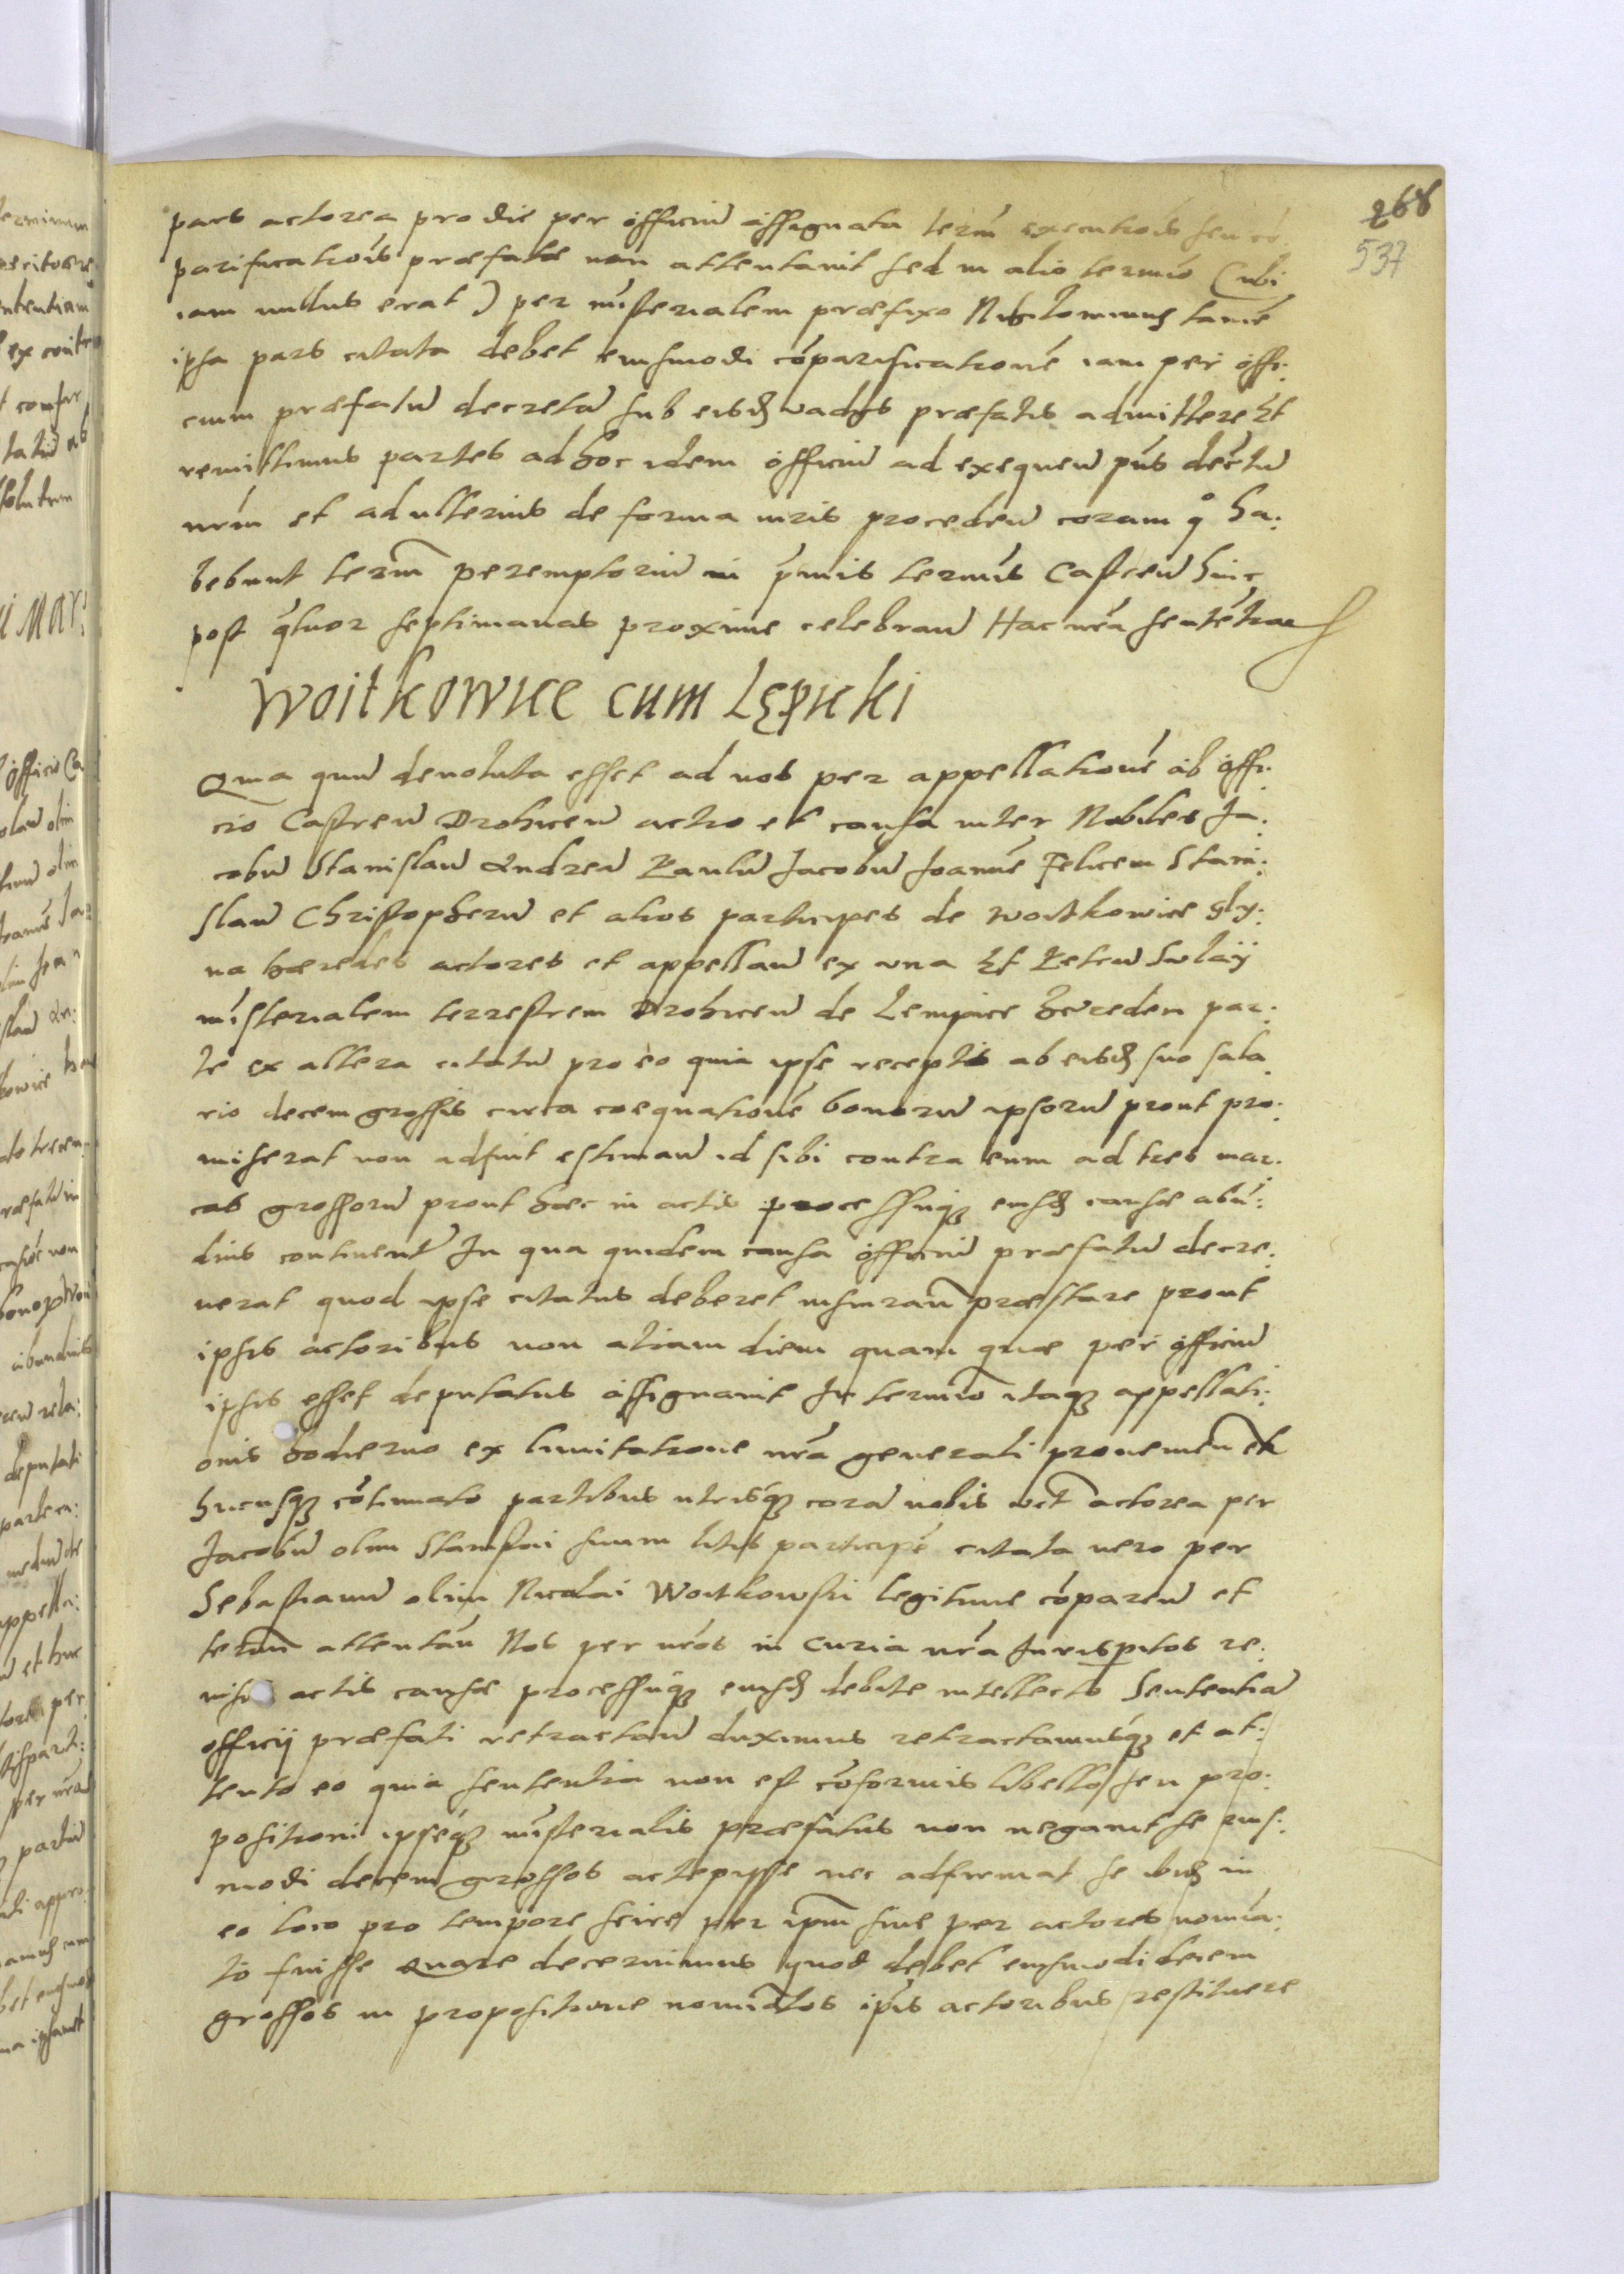 268
537
pars actorea pro die per officiũ assignata term̃ executiois seu cõ:
parificatiois præfatæ non attentavit sed in alio termĩo (ubi
iam nullus erat) per mĩsterialem præfixo Nihilominus tamẽ
ipsa pars citata debet eiusmodi cõparificationẽ iam per offi:
cium præfatũ decretã sub eisdẽ vadijs præfatis admittere Et
remittimus partes ad hoc idem officiũ ad exequeñ pñs decrtũ
nrm̃ et ad ulterius de forma iuris procedeñ coram qº ha:
bebunt term̃ peremptoriũ in primis termĩs Castreñ hinc
post qtuor septimanas proxime celebrañ Hac nrã sentẽtiae
Woitkowice cum Lępicki
Quia quũ devoluta esset ad nos per appellationẽ ab offi:
cio Castreñ Drohiceñ actio et causa inter Nobiles Ja:
cobũ Stanislaũ Andreã Paulũ Jacobũ Joannẽ Felicem Stani:
slaũ Christopherũ et alios participes de Woitkowice gly:
na hæredes actores et appellañ ex una Et Petrũ
misterialem terrestrem Drohiceñ de Lempice heredem par:
te ex altera citatũ pro eo quia ipse receptis ab eisdẽ suo sala
rio decem grossis circa coequationẽ bonorũ ipsorũ prout pro:
miserat non adfuit estimañ id sibi contra eum ad tres mar:
cas grossorũ prout hæc in actis processuq; eiusdẽ causæ abũ:
dius continent̃ In qua quidem causa officiũ præfatũ decre:
verat quod ipse citatus deberet iusiurañ præstare prout
ipsis actoribus non aliam diem quam quæ per officiũ
ipsis esset deputatus assignavit In termĩo itaq; appellati:
onis hodierno ex limitatione nrã generali provenieñ et
hucusq; cõtinuato partibus utrisq; corã nobis vt̃ actorea per
Jacobũ olim Stanislai suum litis participẽ citata vero per
Sebastianũ olim Nicolai Woitkowski legitime cõpareñ et
termĩ attentañ Nos per nrõs in Curia nrã Jurisperitos re:
visis actis causæ processuq; eiusdẽ debite intellecto Sententiã
officij præfati retractañ duximus retractamusq; et at:
tento eo quia sententia non est cõformis libello seu pro:
positioni ipseq; misterialis præfatus non negavit se eius:
modi decem grossos accepisse nec adfirmat se ibidẽ in
eo loco pro tempore scire per ipm̃ sive per actores nomĩa:
to fuisse Quare decernimus quod debet eiusmodi decem
grossos in propositione nomĩatos ipis actoribus restituere